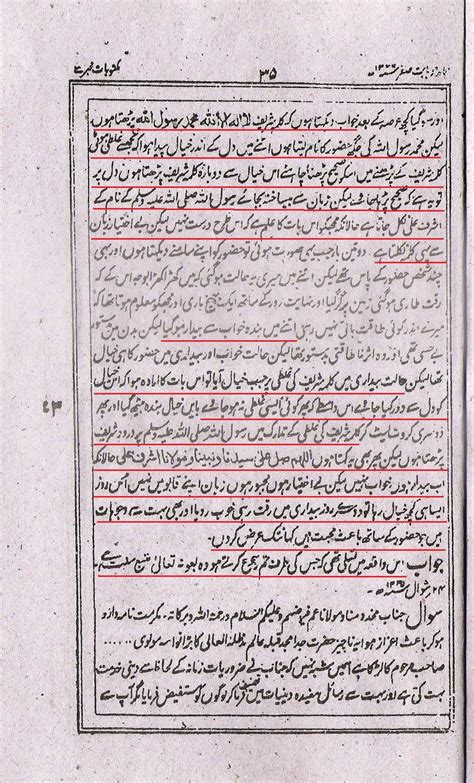 ۳۵
اور سو گیا کچھ عرصہ کے بعد خواب دیکھتا ہوں کہ کلمہ شریف لا الہ الا اللہ محمد رسول اللہ پڑھتا ہوں
لیکن محمد رسول اللہ کی جگہ حضور کا نام لیتا ہوں اتنے میں دل کے اندر خیال پیدا ہوا کہ تجھ سے غلطی ہوئی
کلمہ شریف کے پڑھنے میں اسکو صحیح پڑھنا چاہئے اس خیال سے دوبارہ کلمہ شریف پڑھتا ہوں دل پر
تو یہ ہے کہ صحیح پڑھا جاوے لیکن زبان سے بیساختہ بجائے رسول اللہ صلی اللہ علیہ وسلم کے نام کے
اشرف علی نکل جاتا ہے حالانکہ مجھکو اس بات کا علم ہے کہ اس طرح درست نہیں لیکن بے اختیار زبان
سے یہی کلمہ نکلتا ہے ۔ دو تین بار جب یہی صورت ہوئی تو حضور کو اپنے سامنے دیکھتا ہوں اور بھی
چند شخص حضور کے پاس تھے لیکن اتنے میں میری یہ حالت ہوگئی کہ میں کھڑا کھڑا بوجہ اس کے کہ
رقت طاری ہوگئی زمین پر گر گیا اور نہایت زور کے ساتھ ایک چیخ ماری اور مجھکو معلوم ہوتا تھا کہ
میرے اندر کوئی طاقت باقی نہیں رہی اتنے میں بندہ خواب سے بیدار ہوگیا لیکن بدن میں بدستور
بے حسی تھی اور وہ اثر ناطاقتی بدستور تھا لیکن حالت خواب اور بیداری میں حضور کا ہی خیال
تھا لیکن حالت بیداری میں کلمہ شریف کی غلطی پر جب خیال آیا تو اس بات کا ارادہ ہوا کہ اس خیال
کو دل سے دور کیا جاوے اس واسطے کہ پھر کوئی ایسی غلطی نہ ہو جاوے بایں خیال بندہ بیٹھ گیا اور پھر
دوسری کروٹ لیٹ کر کلمہ شریف کی غلطی کے تدارک میں رسول اللہ صلی اللہ علیہ وسلم پر درود شریف
پڑھتا ہوں لیکن پھر بھی یہ کہتا ہوں اللہم صل علی سیدنا ونبینا ومولانا اشرف علی حالانکہ
اب بیدار ہوں خواب نہیں لیکن بے اختیار ہوں مجبور ہوں زبان اپنے قابو میں نہیں اس روز
ایسا ہی کچھ خیال رہا تو دوسرے روز بیداری میں رقت رہی خوب رویا اور بھی بہت سے وجوہات
ہیں جو حضور کے ساتھ باعث محبت ہیں کہاں تک عرض کروں ۔
جواب اس واقعہ میں تسلی تھی کہ جس کی طرف تم رجوع کرتے ہو وہ بعونہ تعالیٰ متبع سنت ہے
۲۴ شوال
سوال جناب مخدومنا و مولانا وعلیکم السلام ورحمۃ اللہ وبرکاتہ ۔ مکرمت نامہ وارد
ہو کر باعث اعزاز ہوا یہ ناچیز حضرت
صاحب مرحوم کا لڑکا ہے اسمیں شبہ نہیں کہ جناب نے ضروریات زمانہ کے لحاظ سے دینی خدمت
بہت کی ہے اور بہت سے رسائل مفیدہ دینیات میں تصنیف فرما کر لوگوں کو مستفیض فرمایا مگر آپ سے